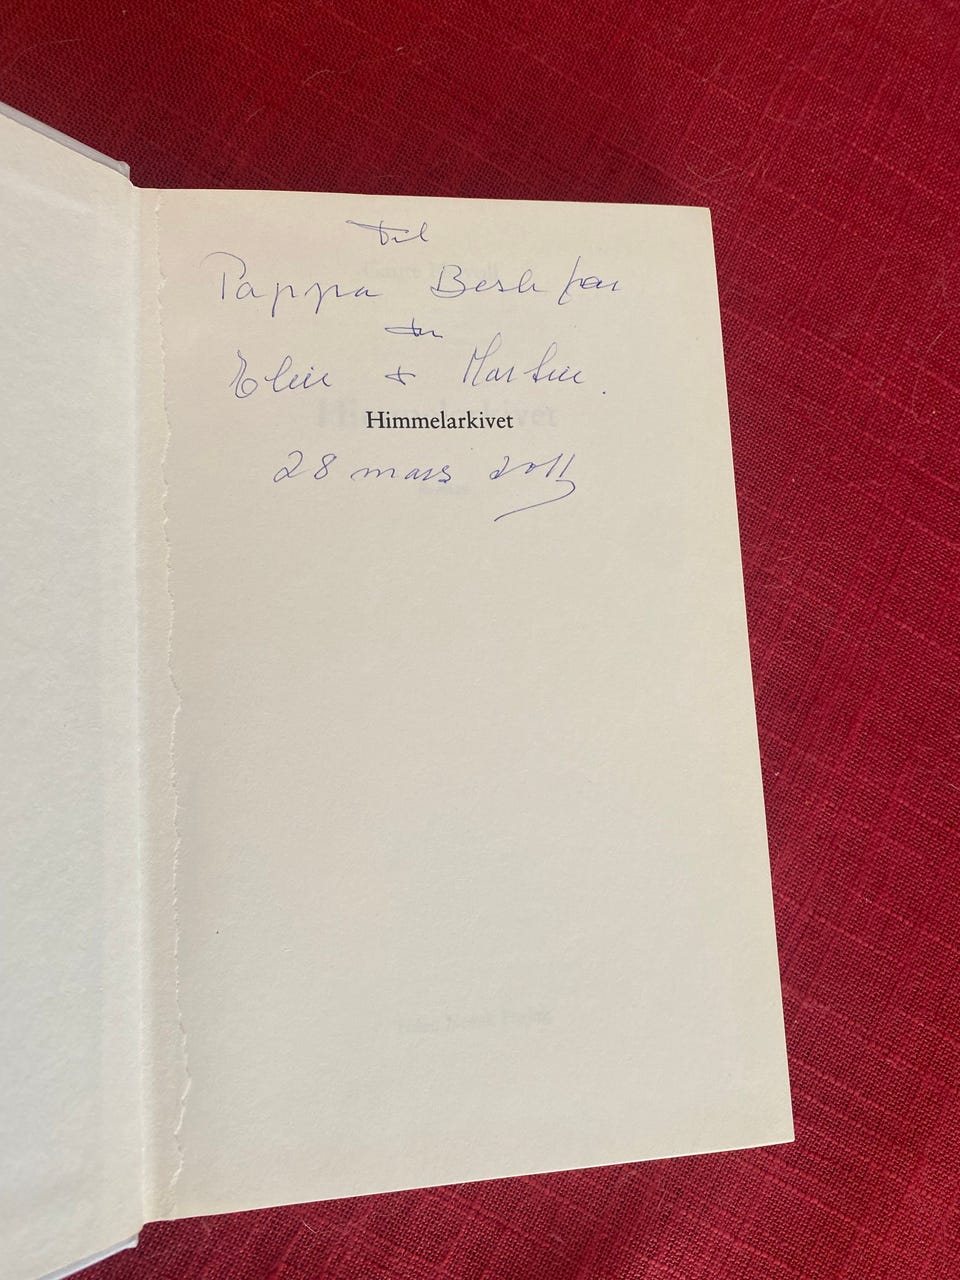 Til
Pappa Beste far
fra
Elin + Martin.
Himmelarkivet
28 mars 2011